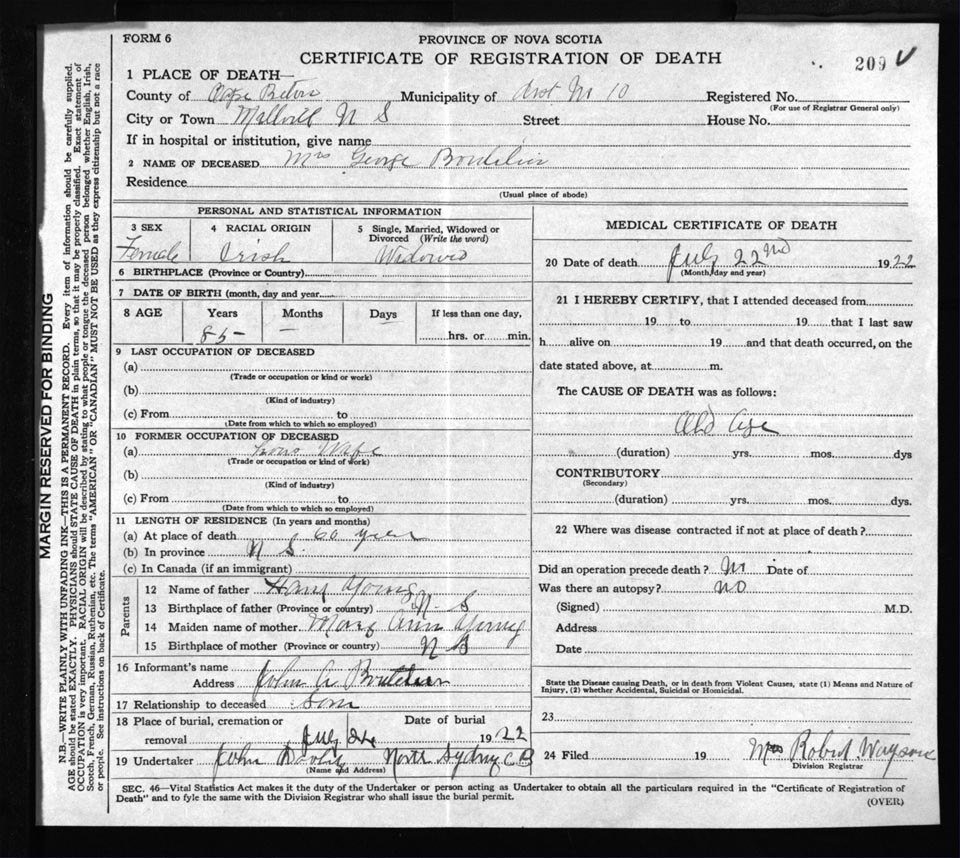 FORM 6
PROVINCE OF NOVA SCOTIA
CERTIFICATE OF REGISTRATION OF DEATH
209
1 PLACE OF DEATH—
County of Cape Breton Municipality of No 10 Registered No.
(For use of Registrar General only)
City or Town Millvill N S Street House No.
If in hospital or institution, give name
2 NAME OF DECEASED Mrs George Boutelier
Residence
(Usual place of abode)
PERSONAL AND STATISTICAL INFORMATION
3 SEX 4 RACIAL ORIGIN 5 Single, Married, Widowed or Divorced (Write the word)
Female Irish Widowed
6 BIRTHPLACE (Province or Country)
7 DATE OF BIRTH (month, day and year)
8 AGE Years Months Days If less than one day,
85 – hrs. or min.
9 LAST OCCUPATION OF DECEASED
(a)
(Trade or occupation or kind or work)
(b)
(Kind of industry)
(c) From to
(Date from which to which so employed)
10 FORMER OCCUPATION OF DECEASED
(a) Wife
(Trade or occupation or kind of work)
(b)
(Kind of industry)
(c) From to
(Date from which to which so employed)
11 LENGTH OF RESIDENCE (In years and months)
(a) At place of death 60 year
(b) In province N S.
(c) In Canada (if an immigrant)
Parents
12 Name of father Young
13 Birthplace of father (Province or country) N S
14 Maiden name of mother Mary Ann Young
15 Birthplace of mother (Province or country) N S
16 Informant's name
Address John A Boutelier
17 Relationship to deceased Son
18 Place of burial, cremation or removal Date of burial
July 24 1922
19 Undertaker John North Sydney C B
(Name and Address)
MEDICAL CERTIFICATE OF DEATH
20 Date of death July 22nd 1922
(Month, day and year)
21 I HEREBY CERTIFY, that I attended deceased from
19 to 19 that I last saw
h alive on 19 and that death occurred, on the
date stated above, at m.
The CAUSE OF DEATH was as follows:
Old Age
(duration) yrs. mos. dys
CONTRIBUTORY
(Secondary)
(duration) yrs. mos. dys.
22 Where was disease contracted if not at place of death?
Did an operation precede death? No Date of
Was there an autopsy? NO
(Signed) M.D.
Address
Date
State the Disease causing Death, or in death from Violent Causes, state (1) Means and Nature of
Injury, (2) whether Accidental, Suicidal or Homicidal.
23
24 Filed 19 Mrs Robert
Division Registrar
SEC. 46—Vital Statistics Act makes it the duty of the Undertaker or person acting as Undertaker to obtain all the particulars required in the "Certificate of Registration of
Death" and to fyle the same with the Division Registrar who shall issue the burial permit.
(OVER)
MARGIN RESERVED FOR BINDING
N.B.—WRITE PLAINLY WITH UNFADING INK—THIS IS A PERMANENT RECORD. Every item of information should be carefully supplied.
AGE should be stated EXACTLY. PHYSICIANS should STATE CAUSE OF DEATH in plain terms, so that it may be properly classified. Exact statement of
OCCUPATION is very important. RACIAL ORIGIN will be described by stating to what people or tongue the deceased person belonged whether English, Irish,
Scotch, French, German, Russian, Ruthenian, etc. The terms "AMERICAN" OR "CANADIAN" MUST NOT BE USED as they express citizenship but not a race
or people. See instructions on back of Certificate.